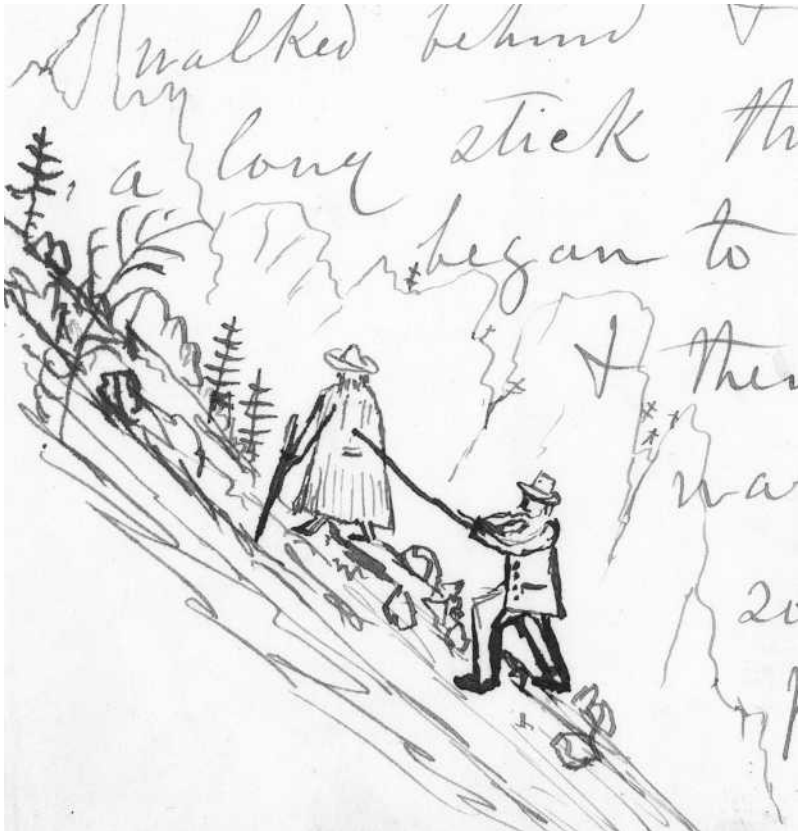 walked behind &
a long stick
began to
& then
wa
20